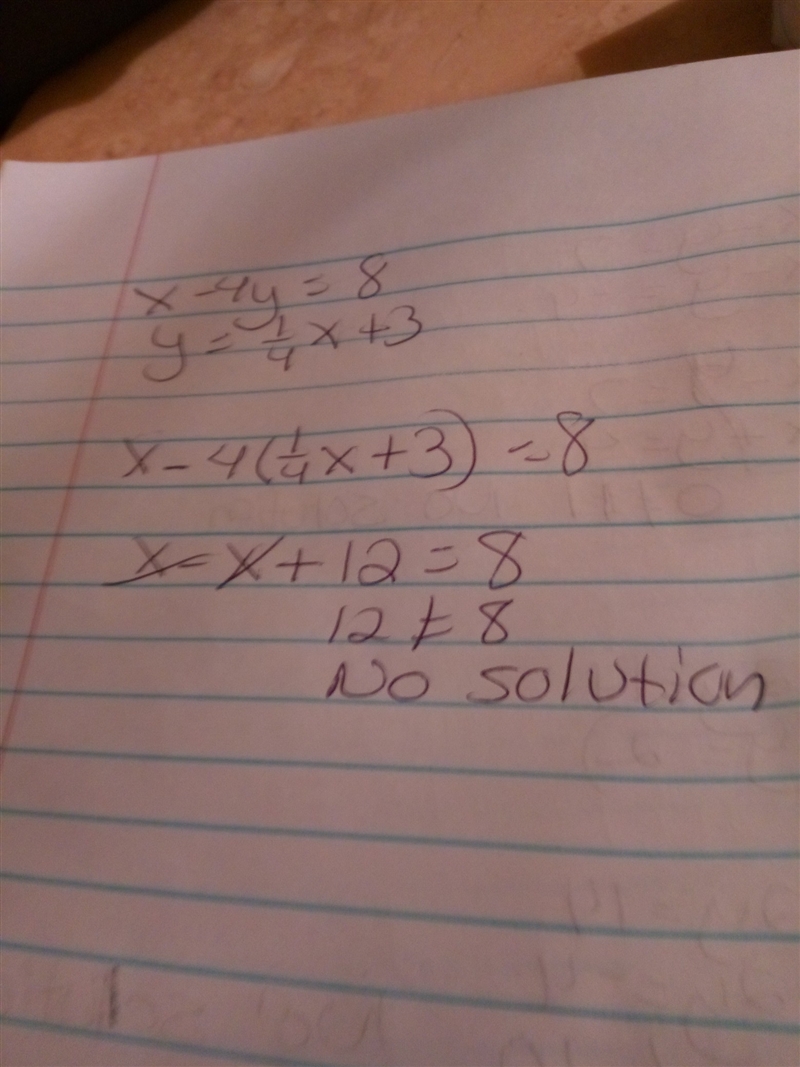 x - 4y = 8
y = 1/4 x + 3
x - 4(1/4 x + 3) = 8
x - x + 12 = 8
12 ≠ 8
No solution